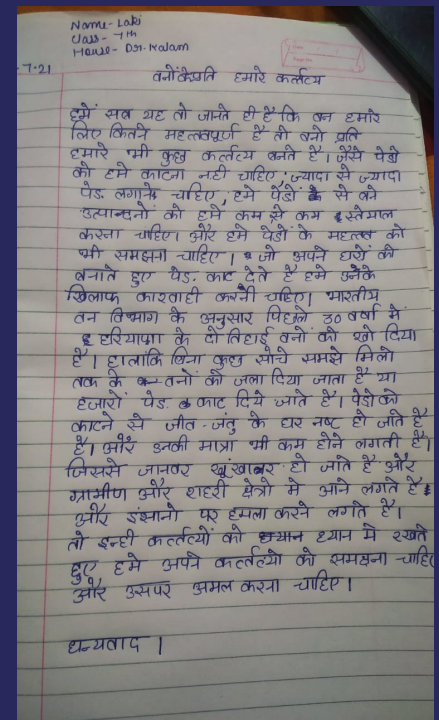 Name- Laki
Class- 7th
House- Dr. Kalam
7.21
वनों के प्रति हमारे कर्त्तव्य
हमें सब यह तो जानते ही है कि वन हमारे
लिए कितने महत्वपूर्ण है तो वनो प्रति
हमारे भी कुछ कर्त्तव्य बनते है। जैसे पेडो
को हमे काटना नही चाहिए, ज्यादा से ज्यादा
पेड. लगाने चाहिए, हमे पेंडों से बने
उत्पादनों को हमें कम से कम इस्तेमाल
करना चाहिए। और हमे पेडों के महत्व को
भी समझना चाहिए। जो अपने घरों को
बनाते हुए पेड. काट देते है हमे उनके
खिलाफ कारवाही करनी चाहिए। भारतीय
वन विभाग के अनुसार पिछले 30 वर्षा में
हरियाणा के दो तिहाई वनों को खो दिया
है। हालांकि बिना कुछ सोचे समझे मिलो
तक के वनों को जला दिया जाता है या
हजारों पेड. काट दिये जाते है। पेडो को
काटने से जीव-जंतु के घर नष्ट हो जाते है
है। और उनकी मात्रा भी कम होने लगती है।
जिससे जानवर खूंखार हो जाते है और
ग्रामीण और शहरी क्षेत्रो मे आने लगते है
और इंसानो पर हमला करने लगते है।
तो इन्ही कर्त्तव्यों को ध्यान मे रखते
हुए हमे अपने कर्त्तव्यो को समझना चाहिए
और उसपर अमल करना चाहिए।
धन्यवाद ।